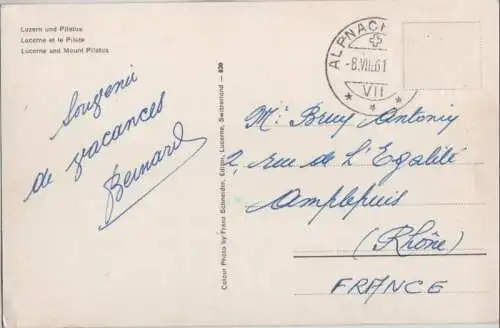 Luzern und Pilatus
Lucerne et le Pilate
Lucerne and Mount Pilatus
Souvenir
de vacances
Bernard
Colour Photo by Franz Schneider, Edition, Lucerne, Switzerland — 830
ALPNACH
-8.VIII.61
VII
Mr Bruy Antoniy
2, rue de l'Egalité
Amplepuis
(Rhône)
FRANCE